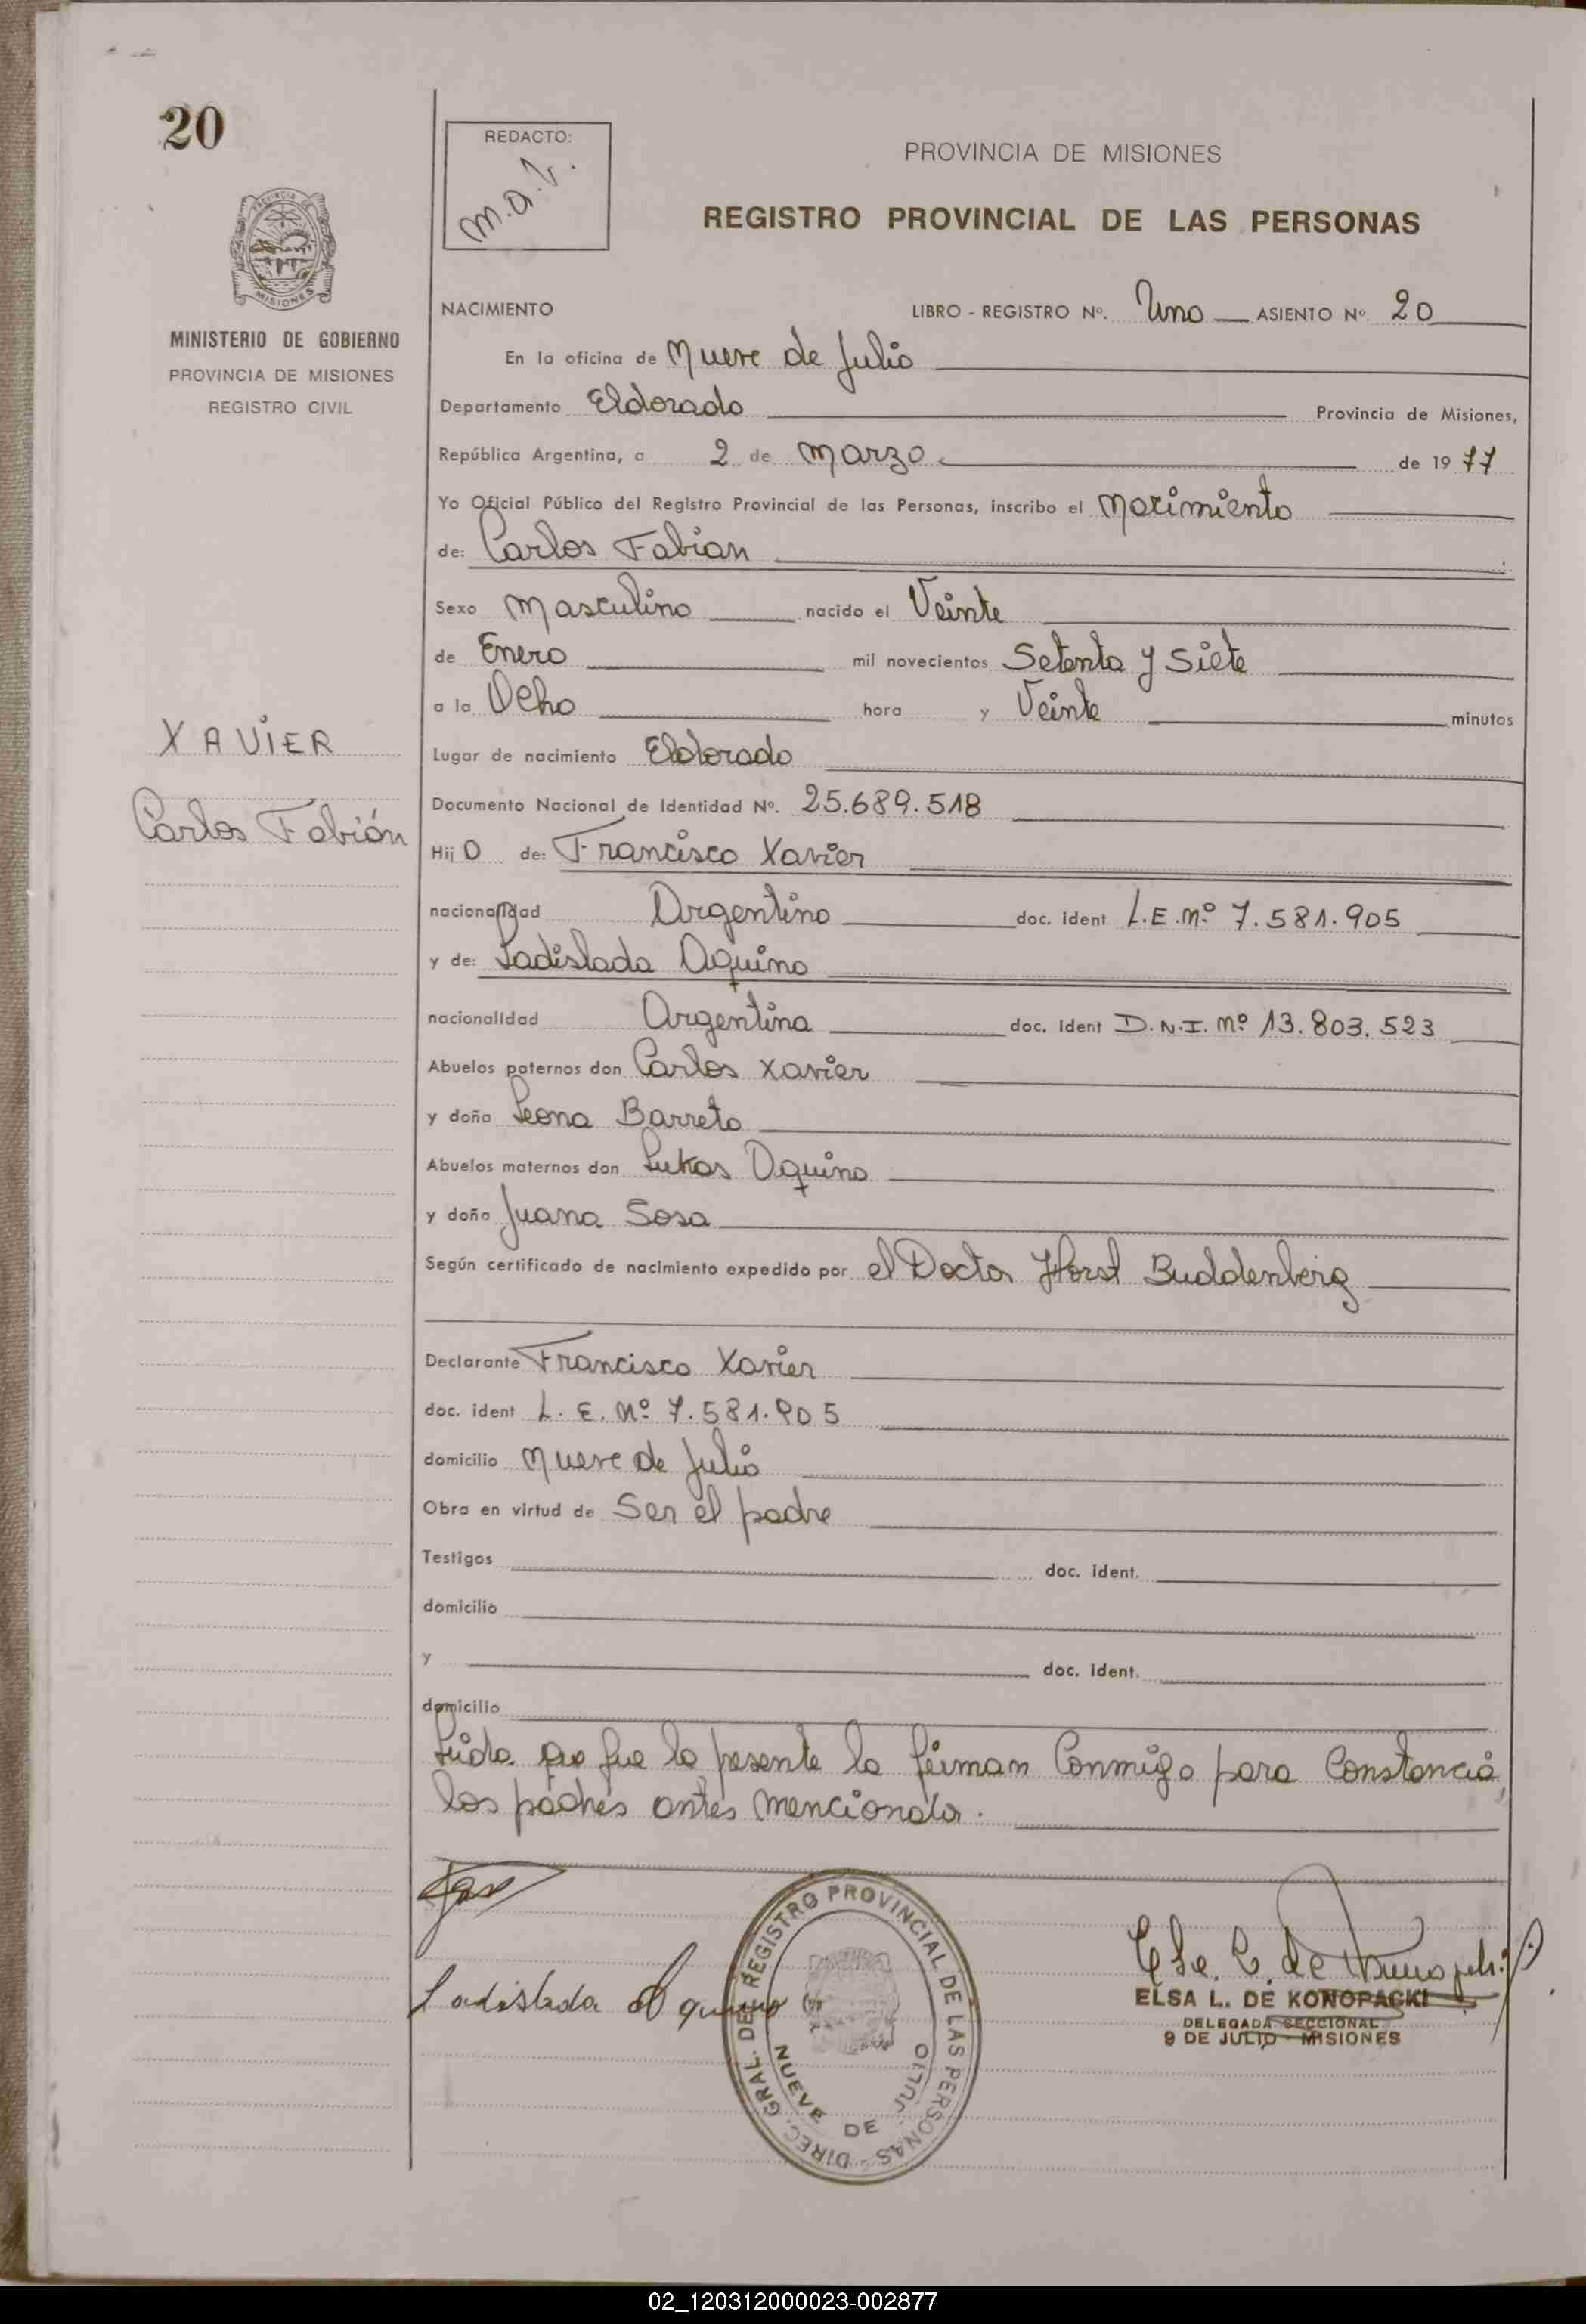 20
REDACTO:
m.a.v.
PROVINCIA DE MISIONES
REGISTRO PROVINCIAL DE LAS PERSONAS
MISIONES
MINISTERIO DE GOBIERNO
PROVINCIA DE MISIONES
REGISTRO CIVIL
NACIMIENTO LIBRO - REGISTRO Nº. Uno ASIENTO Nº 20
En la oficina de Nueve de Julio
Departamento Eldorado Provincia de Misiones,
República Argentina, a 2 de Marzo de 1977
Yo Oficial Público del Registro Provincial de las Personas, inscribo el Nacimiento
de: Carlos Fabian
Sexo Masculino nacido el Veinte
de Enero mil novecientos Setenta y Siete
a la Ocho hora y Veinte minutos
XAVIER
Lugar de nacimiento Eldorado
Carlos Fabián
Documento Nacional de Identidad Nº. 25.689.518
Hijo de: Francisco Xavier
nacionalidad Argentino doc. ident L.E.Nº 7.581.905
y de: Ladislada Aquino
nacionalidad Argentina doc. ident D.N.I. Nº 13.803.523
Abuelos paternos don Carlos Xavier
y doña Leona Barreto
Abuelos maternos don Lukas Aquino
y doña Juana Sosa
Según certificado de nacimiento expedido por el Doctor Horst Buddenberg
Declarante Francisco Xavier
doc. ident L.E. Nº 7.581.905
domicilio Nueve de Julio
Obra en virtud de Ser el padre
Testigos doc. ident.
domicilio
y doc. ident.
domicilio
Leida que fue la pesente la firman Conmigo para Constancia,
los padres antes mencionados.
Ladislada Aquino
DIREC. GRAL. DEL REGISTRO PROVINCIAL DE LAS PERSONAS
NUEVE DE JULIO
Elsa L. de Konopacki
ELSA L. DE KONOPACKI
DELEGADA SECCIONAL
9 DE JULIO - MISIONES
02_120312000023-002877